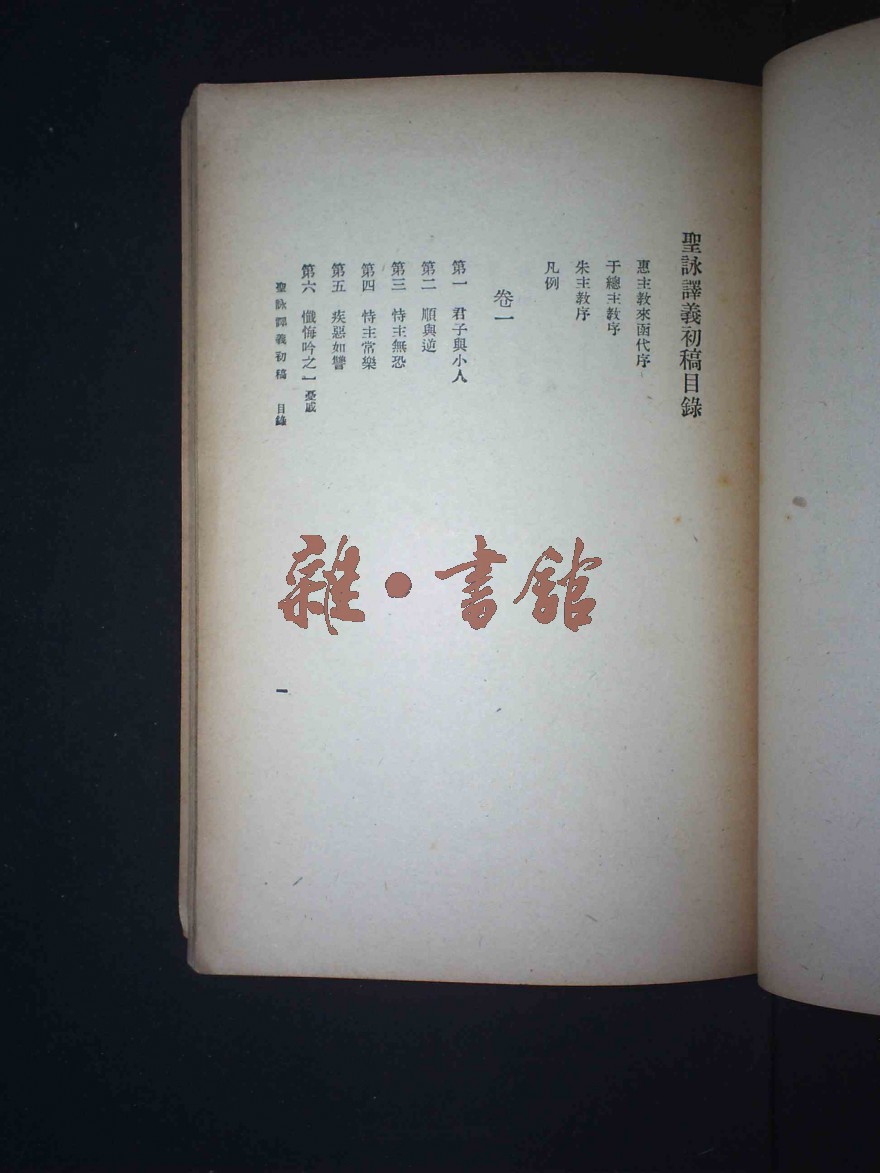 聖詠譯義初稿目錄
惠主教來函代序
于總主教序
朱主教序
凡例
卷一
第一　君子與小人
第二　順與逆
第三　恃主無恐
第四　恃主常樂
第五　疾惡如讐
第六　懺悔吟之一　憂戚
聖詠譯義初稿　目錄
一
雜·書館